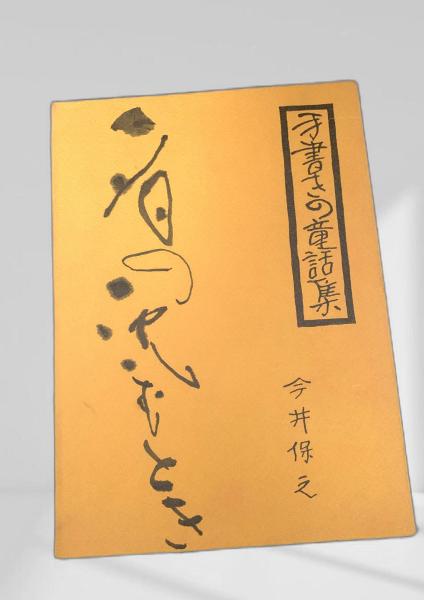 手書きの童話集
今井保之
の沈むとき